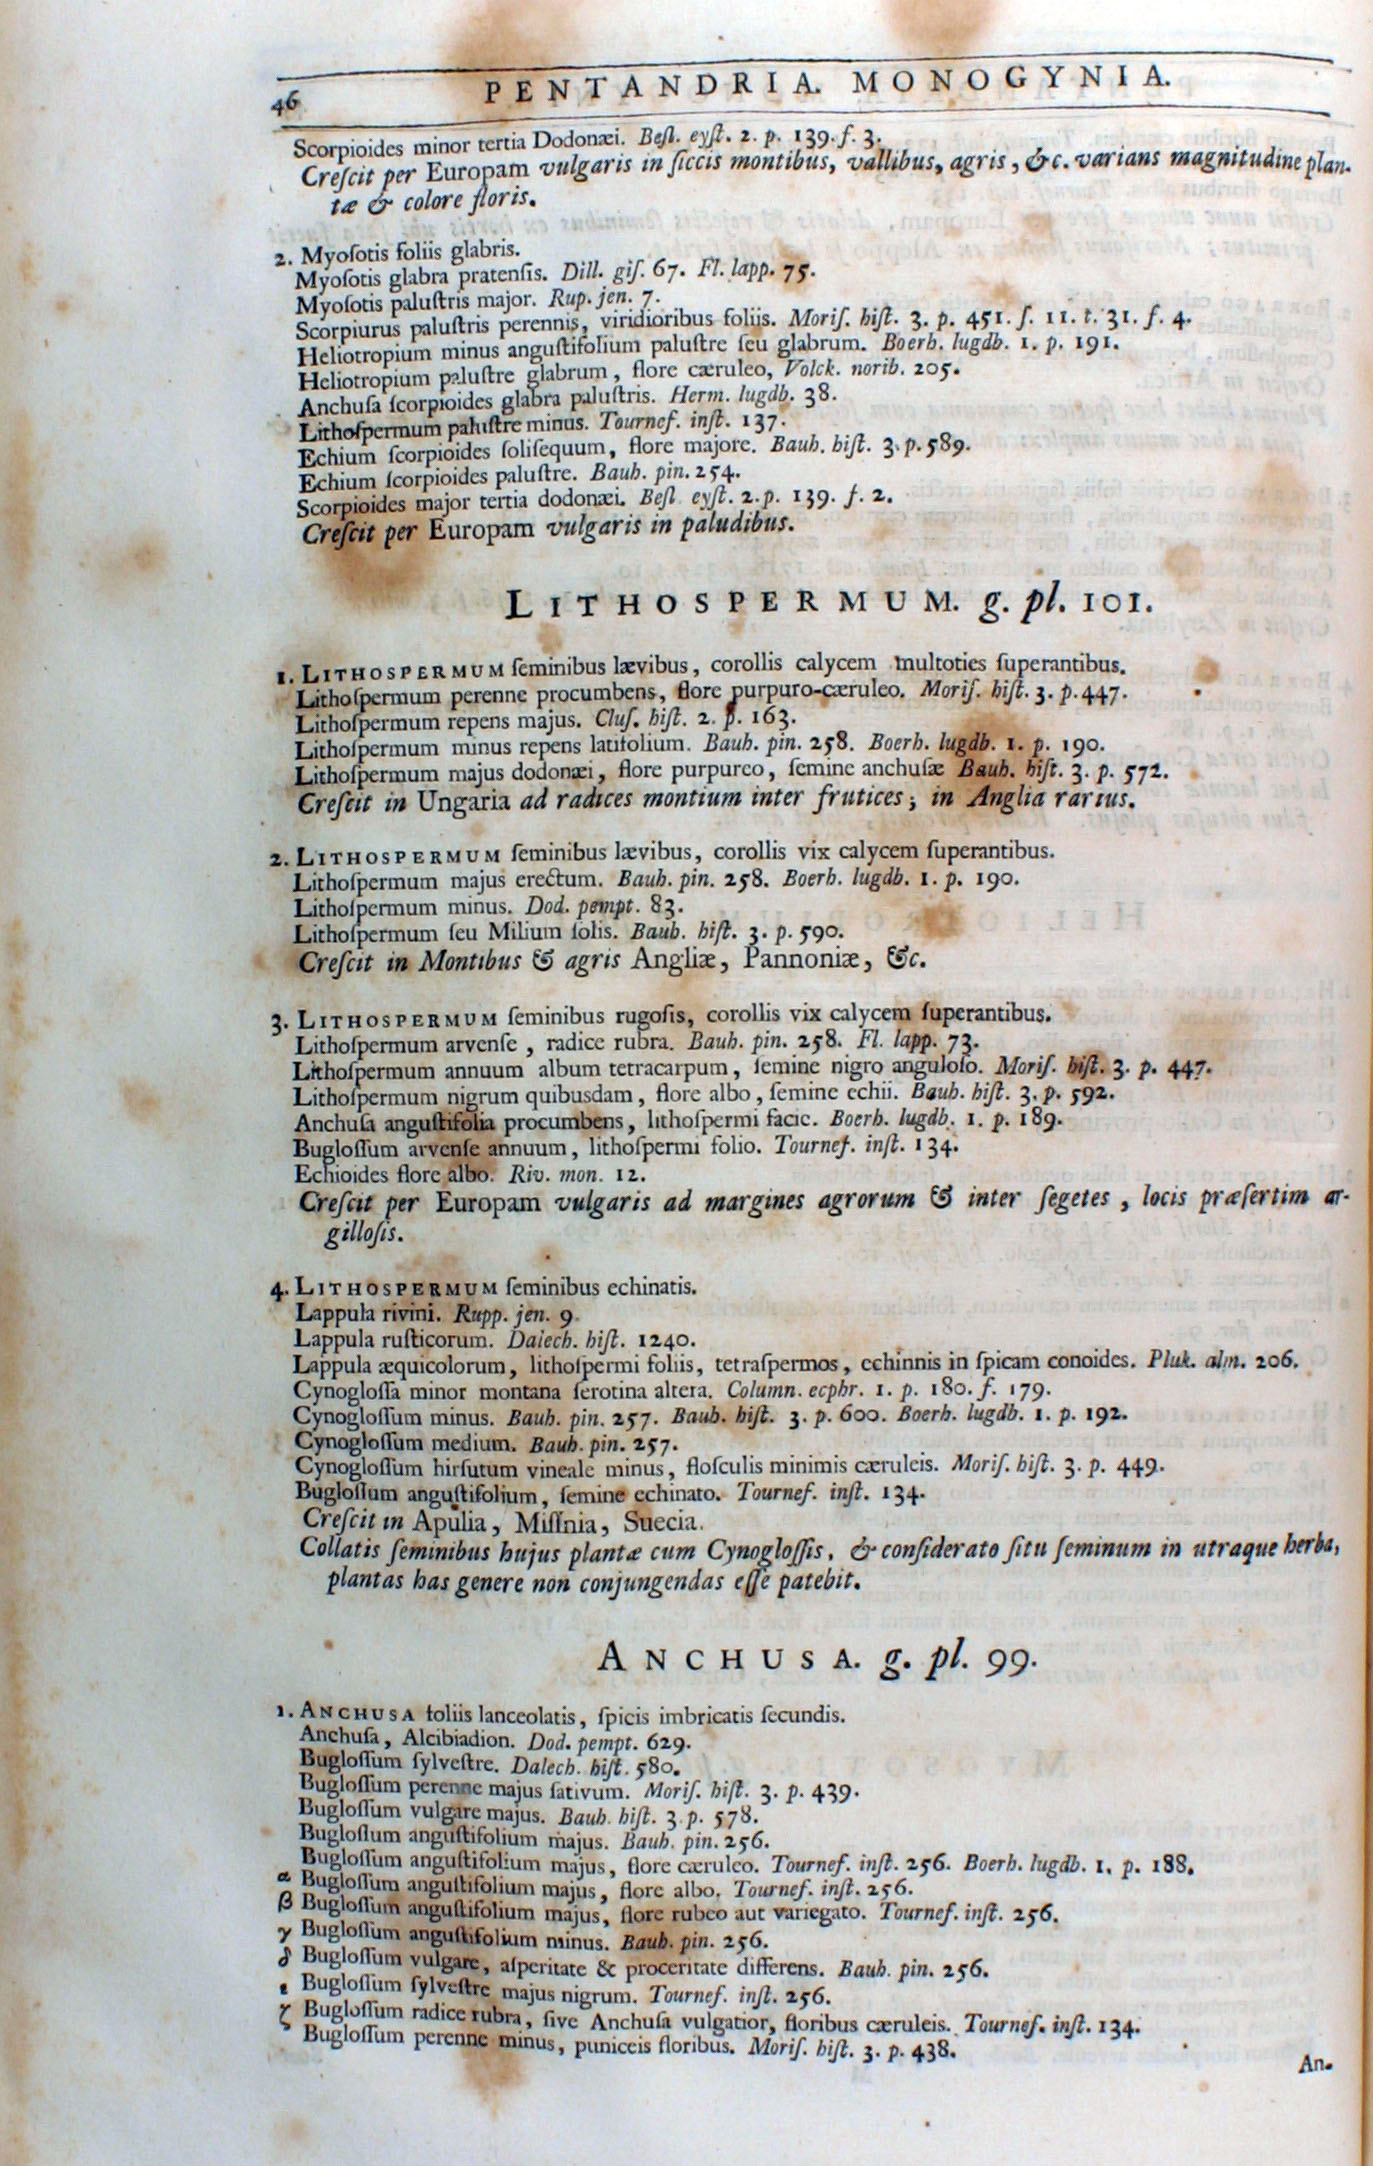 46
PENTANDRIA. MONOGYNIA.
Scorpioides minor tertia Dodonæi. Beſl. eyſt. 2. p. 139. f. 3.
Creſcit per Europam vulgaris in ſiccis montibus, vallibus, agris, &c. varians magnitudine plan-
tæ & colore floris.
2. Myoſotis foliis glabris.
Myoſotis glabra pratenſis. Dill. giſ. 67. Fl. lapp. 75.
Myoſotis paluſtris major. Rup. jen. 7.
Scorpiurus paluſtris perennis, viridioribus foliis. Moriſ. hiſt. 3. p. 451. ſ. 11. t. 31. f. 4.
Heliotropium minus anguſtifolium paluſtre ſeu glabrum. Boerh. lugdb. 1. p. 191.
Heliotropium paluſtre glabrum, flore cæruleo, Volck. norib. 205.
Anchuſa ſcorpioides glabra paluſtris. Herm. lugdb. 38.
Lithoſpermum paluſtre minus. Tournef. inſt. 137.
Echium ſcorpioides ſoliſequum, flore majore. Bauh. hiſt. 3. p. 589.
Echium ſcorpioides paluſtre. Bauh. pin. 254.
Scorpioides major tertia dodonæi. Beſl eyſt. 2. p. 139. f. 2.
Creſcit per Europam vulgaris in paludibus.
LITHOSPERMUM. g. pl. 101.
1. LITHOSPERMUM ſeminibus lævibus, corollis calycem multoties ſuperantibus.
Lithoſpermum perenne procumbens, flore purpuro-cæruleo. Moriſ. hiſt. 3. p. 447.
Lithoſpermum repens majus. Cluſ. hiſt. 2. p. 163.
Lithoſpermum minus repens latifolium. Bauh. pin. 258. Boerh. lugdb. 1. p. 190.
Lithoſpermum majus dodonæi, flore purpureo, ſemine anchuſæ Bauh. hiſt. 3. p. 572.
Creſcit in Ungaria ad radices montium inter frutices; in Anglia rarius.
2. LITHOSPERMUM ſeminibus lævibus, corollis vix calycem ſuperantibus.
Lithoſpermum majus erectum. Bauh. pin. 258. Boerh. lugdb. 1. p. 190.
Lithoſpermum minus. Dod. pempt. 83.
Lithoſpermum ſeu Milium ſolis. Bauh. hiſt. 3. p. 590.
Creſcit in Montibus & agris Angliæ, Pannoniæ, &c.
3. LITHOSPERMUM ſeminibus rugoſis, corollis vix calycem ſuperantibus.
Lithoſpermum arvenſe, radice rubra. Bauh. pin. 258. Fl. lapp. 73.
Lithoſpermum annuum album tetracarpum, ſemine nigro anguloſo. Moriſ. hiſt. 3. p. 447.
Lithoſpermum nigrum quibusdam, flore albo, ſemine echii. Bauh. hiſt. 3. p. 592.
Anchuſa anguſtifolia procumbens, lithoſpermi facie. Boerh. lugdb. 1. p. 189.
Bugloſſum arvenſe annuum, lithoſpermi folio. Tournef. inſt. 134.
Echioides flore albo. Riv. mon. 12.
Creſcit per Europam vulgaris ad margines agrorum & inter ſegetes, locis præſertim ar-
gilloſis.
4. LITHOSPERMUM ſeminibus echinatis.
Lappula rivini. Rupp. jen. 9.
Lappula ruſticorum. Dalech. hiſt. 1240.
Lappula æquicolorum, lithoſpermi foliis, tetraſpermos, echinnis in ſpicam conoides. Pluk. alm. 206.
Cynogloſſa minor montana ſerotina altera. Column. ecphr. 1. p. 180. f. 179.
Cynogloſſum minus. Bauh. pin. 257. Bauh. hiſt. 3. p. 600. Boerh. lugdb. 1. p. 192.
Cynogloſſum medium. Bauh. pin. 257.
Cynogloſſum hirſutum vineale minus, floſculis minimis cæruleis. Moriſ. hiſt. 3. p. 449.
Bugloſſum anguſtifolium, ſemine echinato. Tournef. inſt. 134.
Creſcit in Apulia, Miſſnia, Suecia.
Collatis ſeminibus hujus plantæ cum Cynogloſſis, & conſiderato ſitu ſeminum in utraque herba,
plantas has genere non conjungendas eſſe patebit.
ANCHUSA. g. pl. 99.
1. ANCHUSA foliis lanceolatis, ſpicis imbricatis ſecundis.
Anchuſa, Alcibiadion. Dod. pempt. 629.
Bugloſſum ſylveſtre. Dalech. hiſt. 580.
Bugloſſum perenne majus ſativum. Moriſ. hiſt. 3. p. 439.
Bugloſſum vulgare majus. Bauh. hiſt. 3. p. 578.
Bugloſſum anguſtifolium majus. Bauh. pin. 256.
Bugloſſum anguſtifolium majus, flore cæruleo. Tournef. inſt. 256. Boerh. lugdb. 1. p. 188.
α Bugloſſum anguſtifolium majus, flore albo. Tournef. inſt. 256.
β Bugloſſum anguſtifolium majus, flore rubeo aut variegato. Tournef. inſt. 256.
γ Bugloſſum anguſtifolium minus. Bauh. pin. 256.
δ Bugloſſum vulgare, aſperitate & proceritate differens. Bauh. pin. 256.
ε Bugloſſum ſylveſtre majus nigrum. Tournef. inſt. 256.
ζ Bugloſſum radice rubra, ſive Anchuſa vulgatior, floribus cæruleis. Tournef. inſt. 134.
Bugloſſum perenne minus, puniceis floribus. Moriſ. hiſt. 3. p. 438.
An-